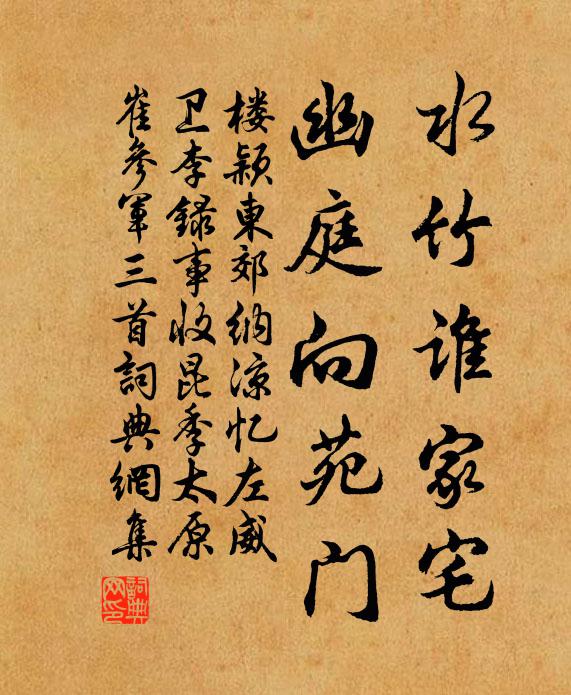 水竹谁家宅
幽庭向苑门
楼颖東郊纳凉忆左威
卫李録事收昆季太原
崔參軍三首詞典網集
詞典网印